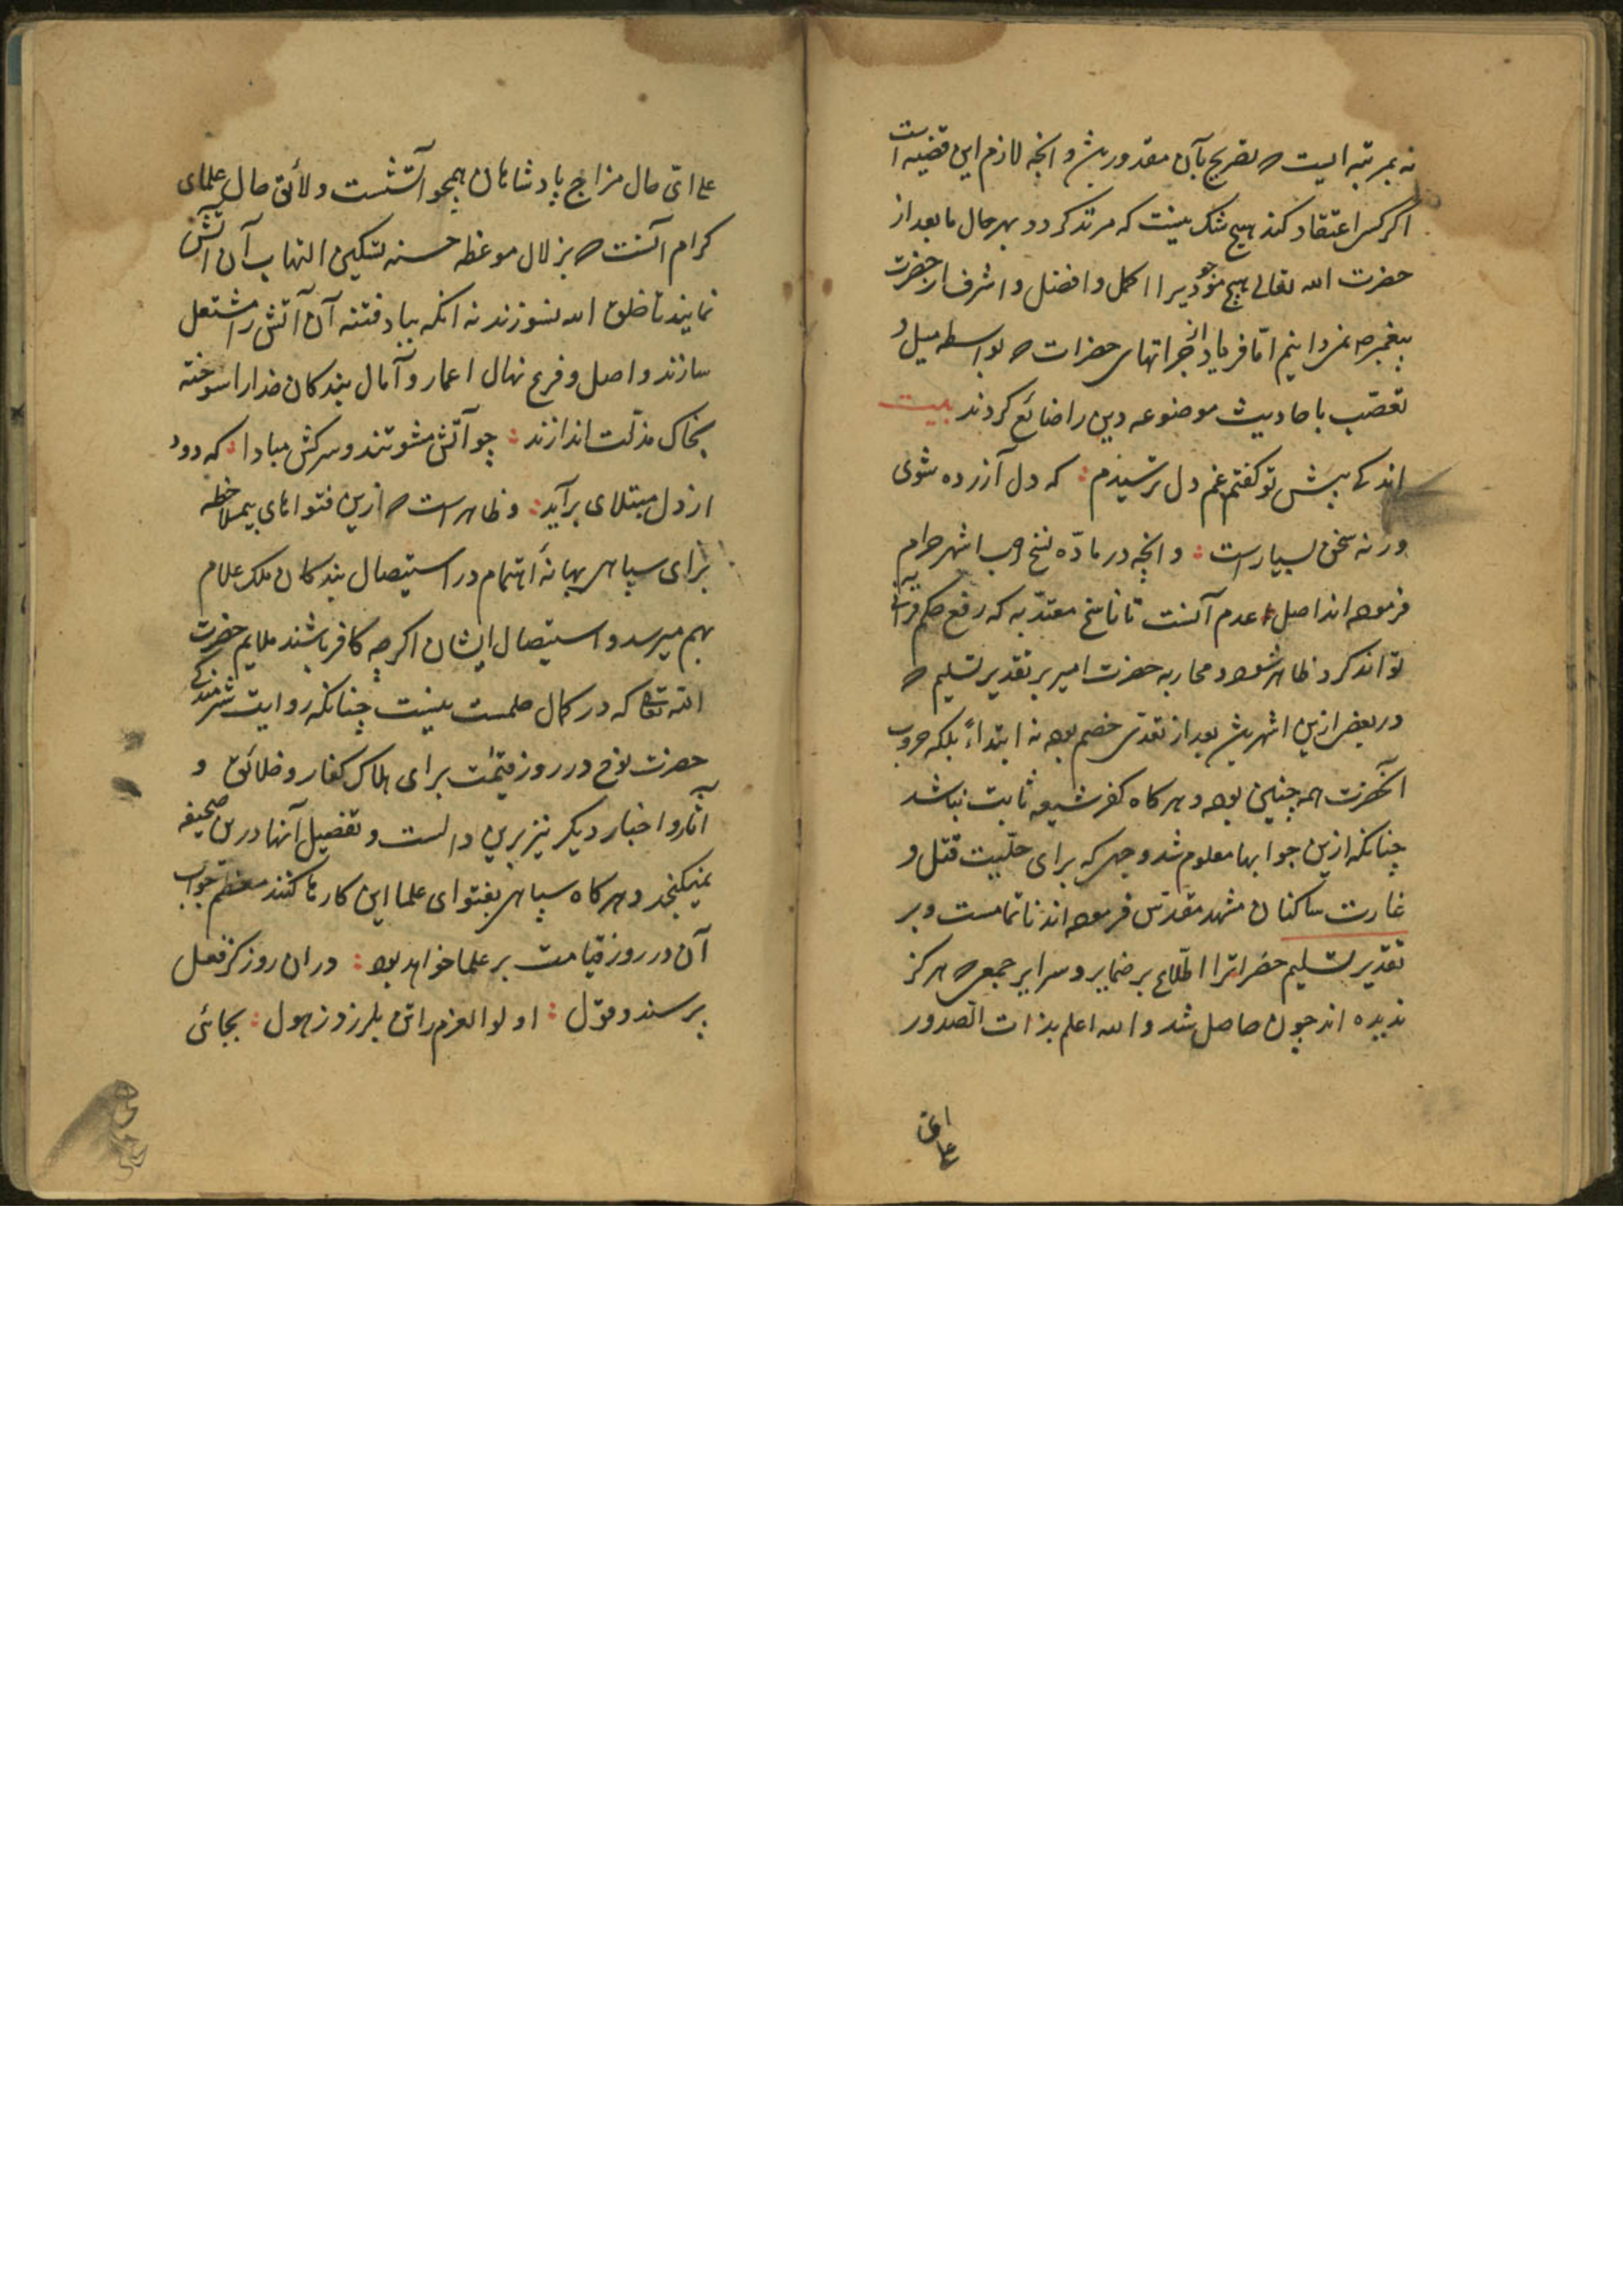 نه بمرتبه ایست که تصریح بآن مقدور بشر و انچه لازم این قضیه است
اگر کسی اعتقاد کند هیچ شک نیست که مرتد گردد بهر حال ما بعد از
حضرت الله تعالی هیچ موجودیرا اکمل و افضل و اشرف از حضرت
پیغمبر ص نمیدانیم اما فریاد از جراتهای حضرات که بواسطه میل و
تعصّب باحادیث موضوعه دین را ضائع کردند بیت
اندکی پیش تو گفتم غم دل ترسیدم که دل آزرده شوی
ورنه سخن بسیارست و انچه در مادّه نسخ اشهر حرام
فرموده اند اصل عدم آنست تا ناسخ معتدّ به که رفع حکم
تواند کرد ظاهر شود و محاربه حضرت امیر بر تقدیر تسلیم که
در بعضی ازین اشهر بعد از تعدّی خصم بوده نه ابتداءً بلکه حروب
آنحضرت همه چنین بوده و هر گاه کفر شیعه ثابت نباشد
چنانکه ازین جوابها معلوم شد وجهی که برای حلّیت قتل و
غارت ساکنان مشهد مقدّس فرموده اند ناتمامست و بر
تقدیر تسلیم حضراترا اطّلاع بر ضمایر و سرایر جمعی که هرگز
ندیده اند چون حاصل شد والله اعلم بذات الصدور
علی ای
علی ایّ حال مزاج پادشاهان همچو آتشست و لائق حال علمای
کرام آنست که بزلال موعظه حسنه تسکین التهاب آن آتش
نمایند تا خلق الله نسوزند نه انکه بباد فتنه آن آتش را مشتعل
سازند و اصل و فرع نهال اعمار و آمال بندکان خدا را سوخته
بخاک مذلّت اندازند چو آتش مشو تند و سرکش مبادا که دود
از دل مبتلای برآید و ظاهر است که ازین فتواهای بیملاحظه
برای سپاهی بهانهٔ اهتمام در استیصال بندکان ملک علام
بهم میرسد و استیصال ایشان اکرچه کافر باشند ملایم حضرت
الله تعالی که در کمال حلمست نیست چنانکه روایت شرمندگی
حضرت نوح در روز قیٰمت برای هلاک کفار و خلائق و
آثار و اخبار دیگر نیز برین دالست و تفصیل آنها درین صحیفه
نمیگنجد و هر گاه سپاهی بفتوای علما این کارها کنند معظم جواب
آن در روز قیامت بر علما خواهد بود دران روز کز فعل
پرسند و قول اولوالعزم را تن بلرزد ز هول بجائی